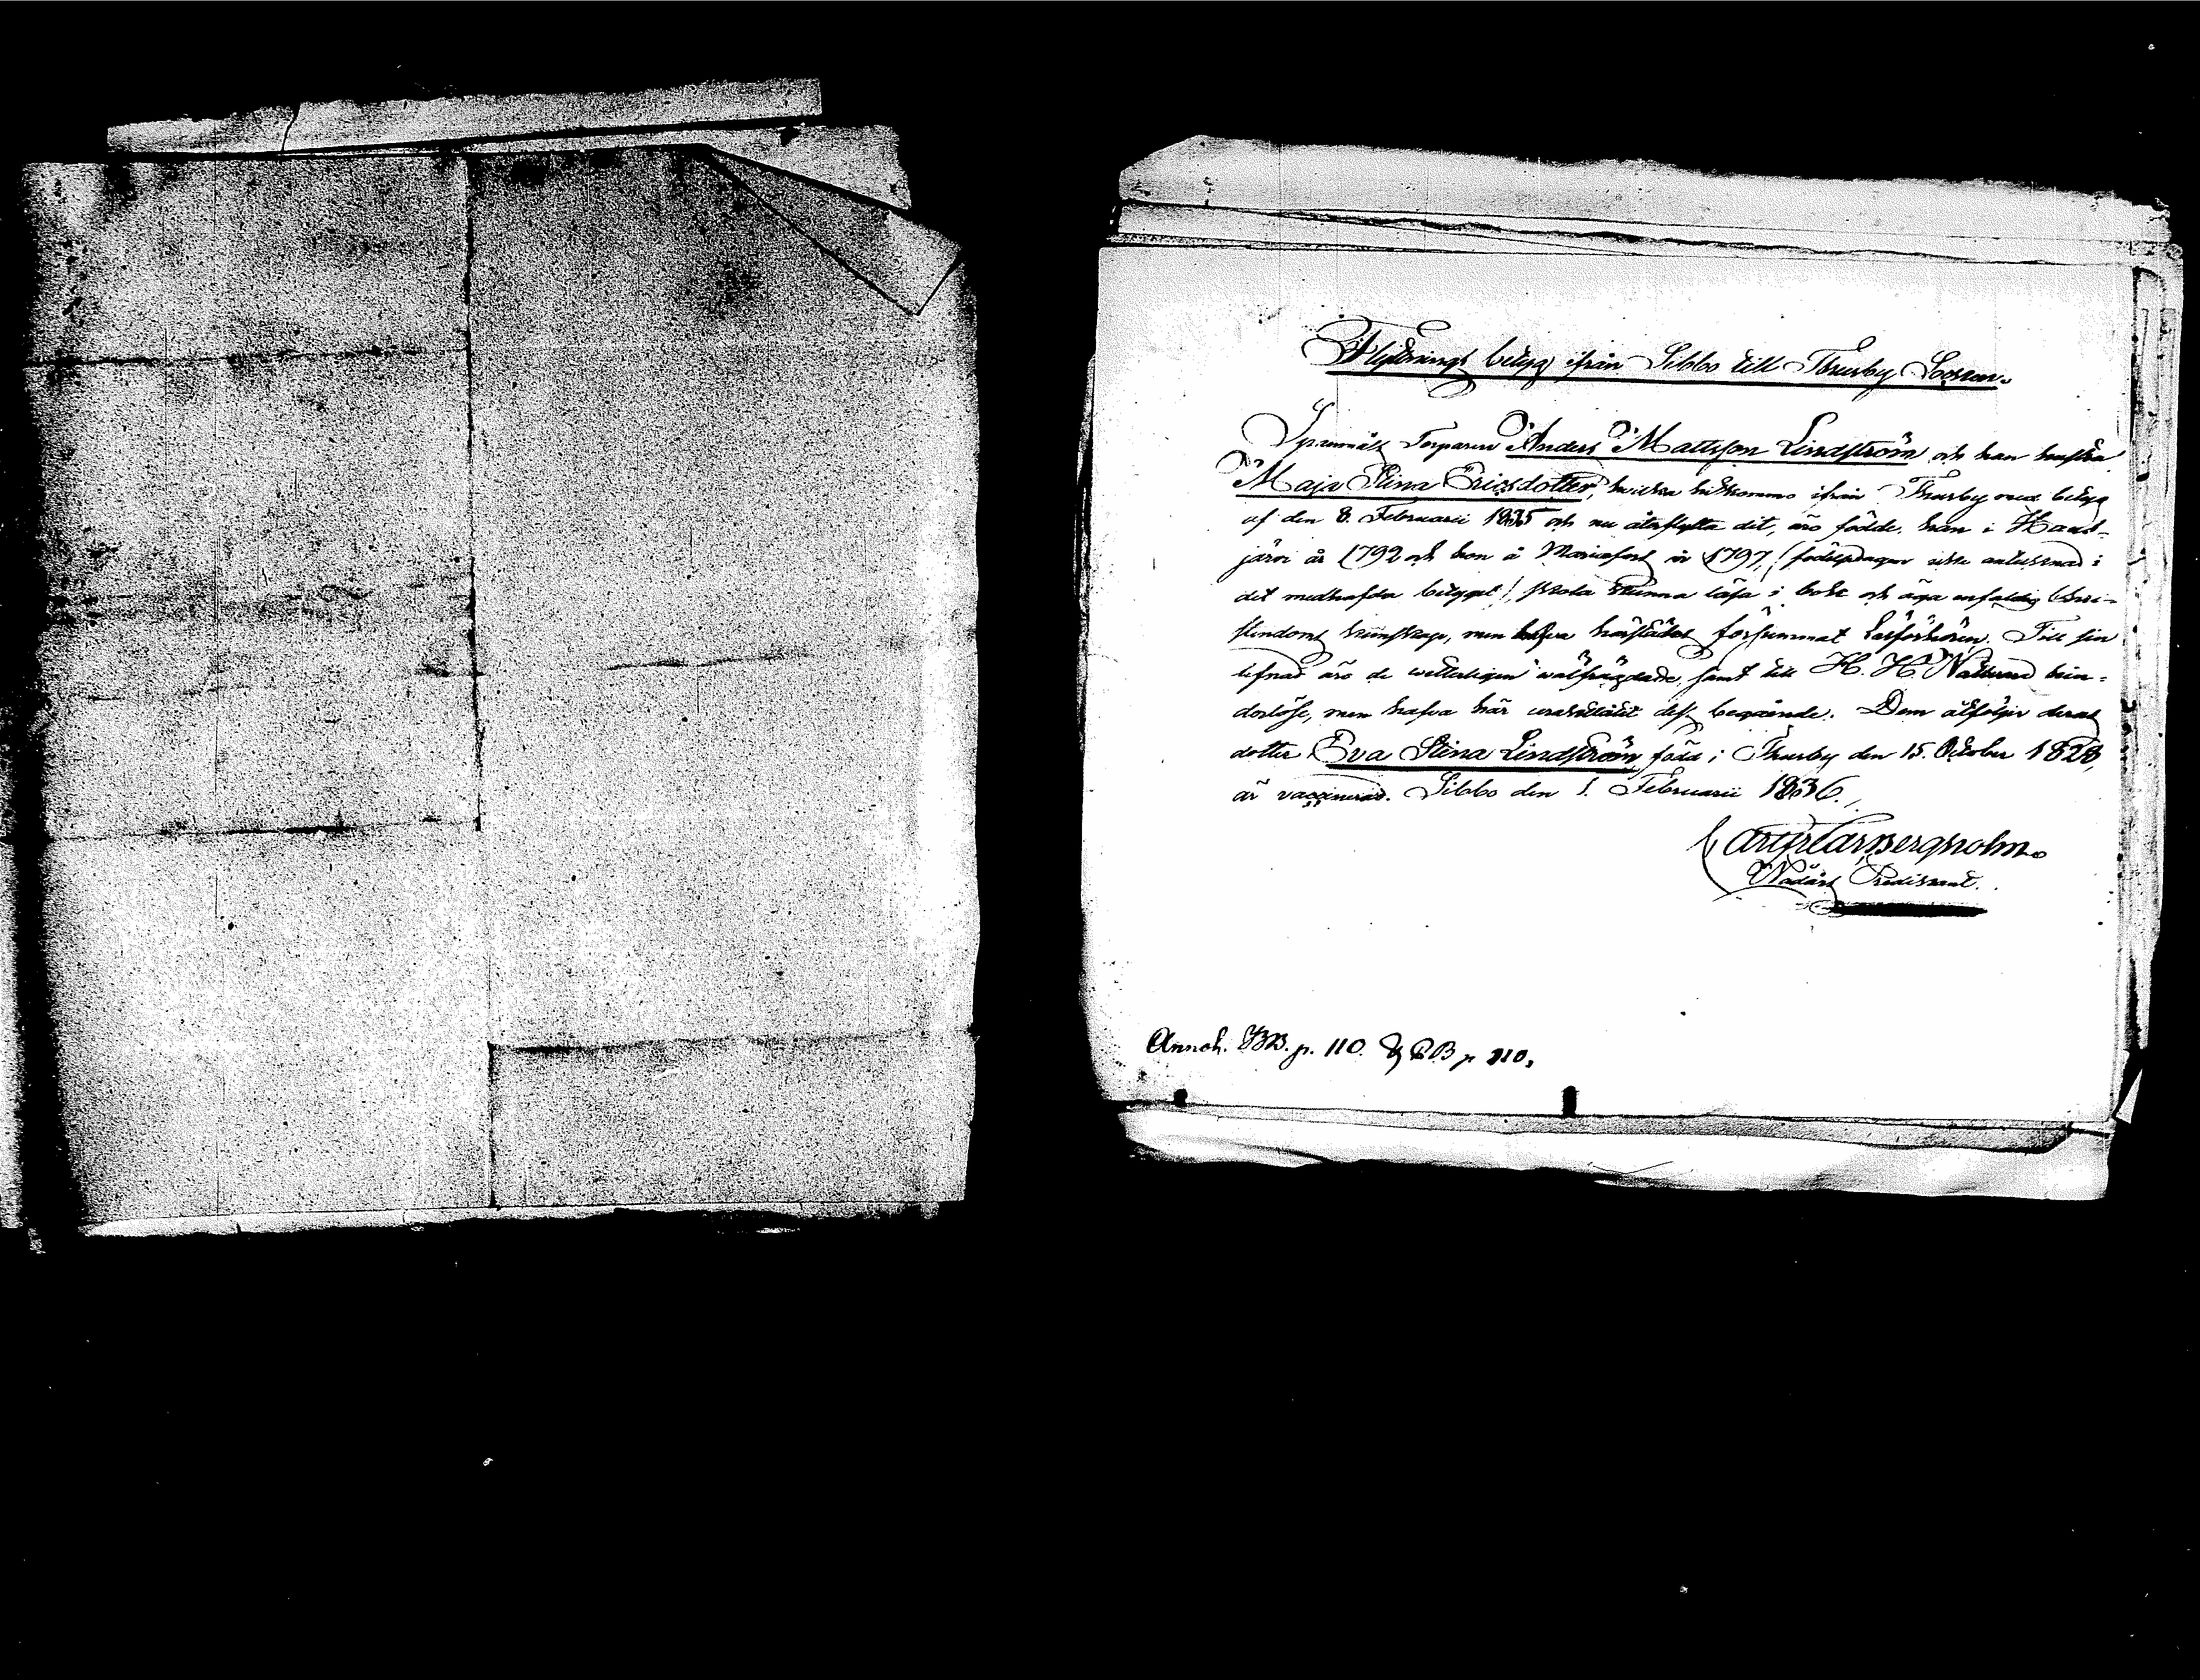 Flyttnings betyg ifrån Sibbo till Thusby Socken.
Torparen Anders Mattsson Lindström och han hustru
Maja Stina Ericsdotter, hwilka hitkommo ifrån Thusby med betyg
af den 8. Februarii 1835 och nu återflytta dit, äro födde, han i Haus-
järvi år 1792 och hon å Mariefors år 1797, (födelsdagar icke antecknad i
det medhafda betyget), skola kunna läsa i bok och äga enfaldig Chri-
stendoms kunskap, men hafva härstädes försummat Läsförhören. Till sin
lefnad äro de wetterligen wälfrägdade, samt till H. H. Nattvard hin-
derlöse, men hafva här uraktlåtit dess begående. Dem åtföljer deras
dotter Eva Stina Lindström född i Thusby den 15. October 1828,
är vaccinerad. Sibbo den 1. Februarii 1836.
Bergholm
Predikant.
Annot. BB. p. 110. & CB p 110.